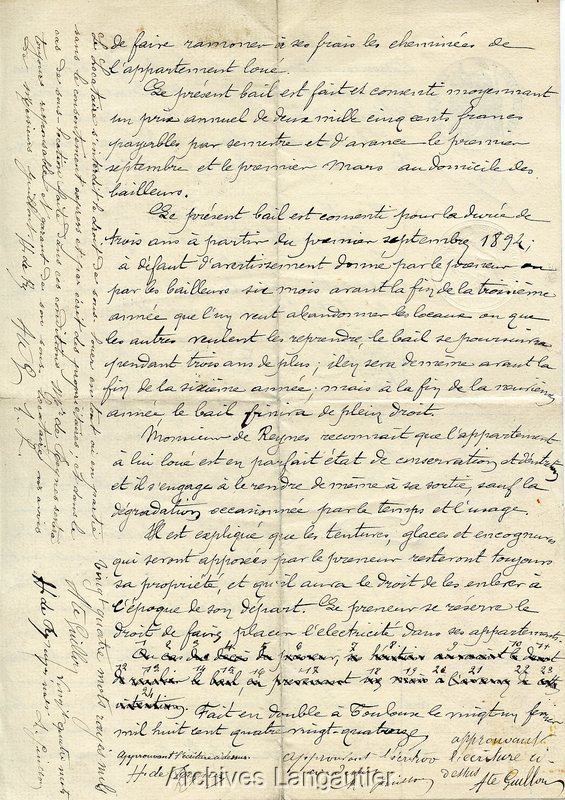 de faire ramoner à ses frais les cheminées de
l'appartement loué.
Le présent bail est fait et consenti moyennant
un prix annuel de deux mille cinq cents francs
payables par semestre et d'avance le premier
septembre et le premier Mars au domicile des
bailleurs.
Le présent bail est consenti pour la durée de
trois ans à partir du premier septembre 1892;
à défaut d'avertissement donné par le preneur ou
par les bailleurs six mois avant la fin de la troisième
année que l'un veut abandonner les locaux ou que
les autres veulent les reprendre, le bail se poursuivra
pendant trois ans de plus; il en sera de même avant la
fin de la sixième année; mais à la fin de la neuvième
année le bail finira de plein droit
Monsieur de Reynes reconnait que l'appartement
à lui loué est en parfait état de conservation et d'entretien
et il s'engage à le rendre de même à sa sortie, sauf la
dégradation occasionnée par le temps et l'usage.
Il est expliqué que les tentures, glaces et encognures
qui seront apposées par le preneur resteront toujours
sa propriété, et qu'il aura le droit de les enlever à
l'époque de son départ. Le preneur se reserve le
droit de faire placer l'électricité dans ses appartements
Fait en double à Toulouse le vingt un
mil huit cent quatre vingt
Approuvant l'écriture ci dessus
H. de
approuvant l'écriture
approuvant
l'écriture ci
dessus
Hte Guillon
Le Locataire s'interdit le droit de sous louer en tout ou en partie
sans le consentement exprès et par écrit des propriétaires, et dans le
cas de sous location faite dans ces conditions Mr de Reynes restera
toujours responsable et garant de son sous locataire vis à vis
de Messieurs Guillon
vingt quatre mots rayés nuls
Hte Guillon
vingt quatre mots
rayés nuls
Archives Langautier